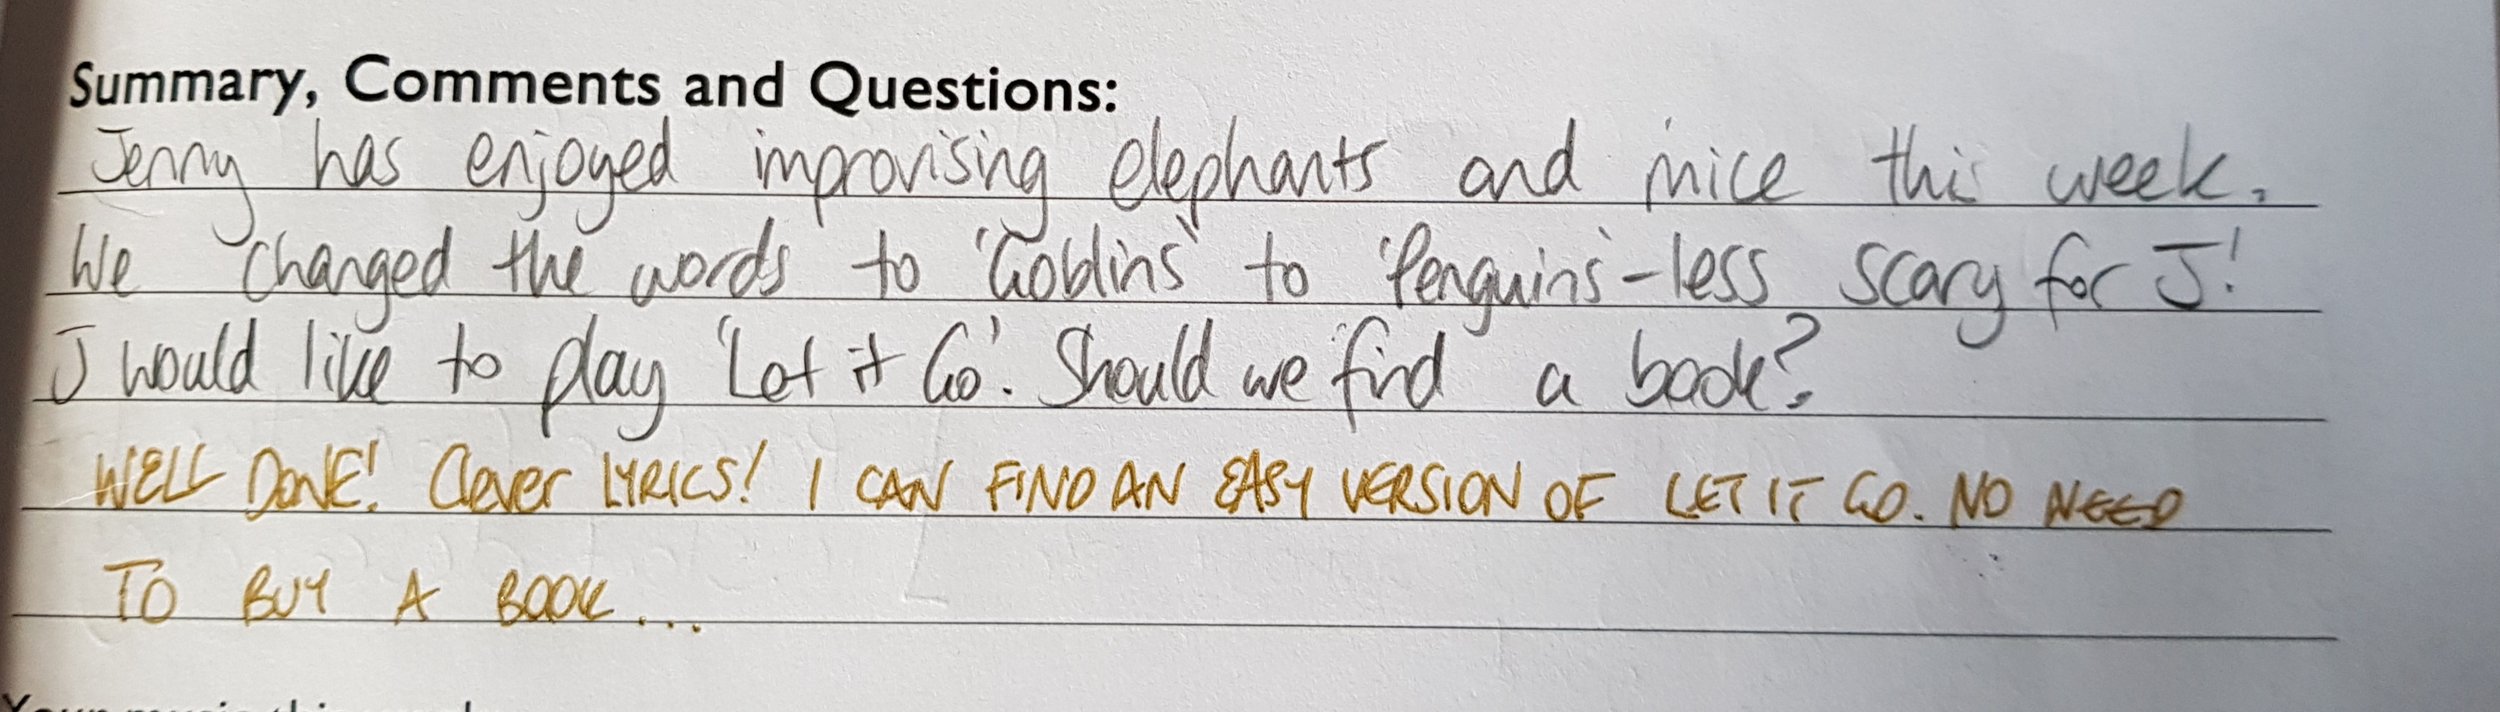 Summary, Comments and Questions:
Jenny has enjoyed improvising elephants and mice this week.
We changed the words to 'Goblins' to 'Penguins' - less scary for J!
J would like to play 'Let it Go'. Should we find a book?
WELL DONE! Clever LYRICS! I CAN FIND AN EASY VERSION OF LET IT GO. NO NEED
TO BUY A BOOK...